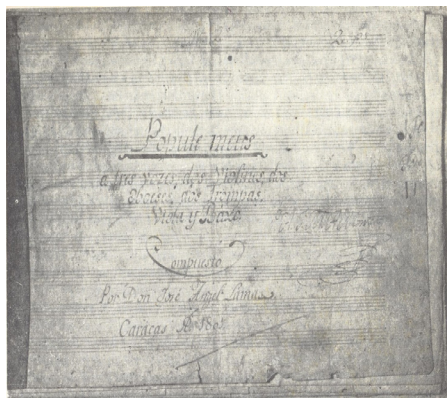 Popule meus
a tres vozes, dos Violines, dos
Oboeses, dos Trompas,
Viola y Baxo.
Compuesto
Por Don José Angel Lamas
Caracas